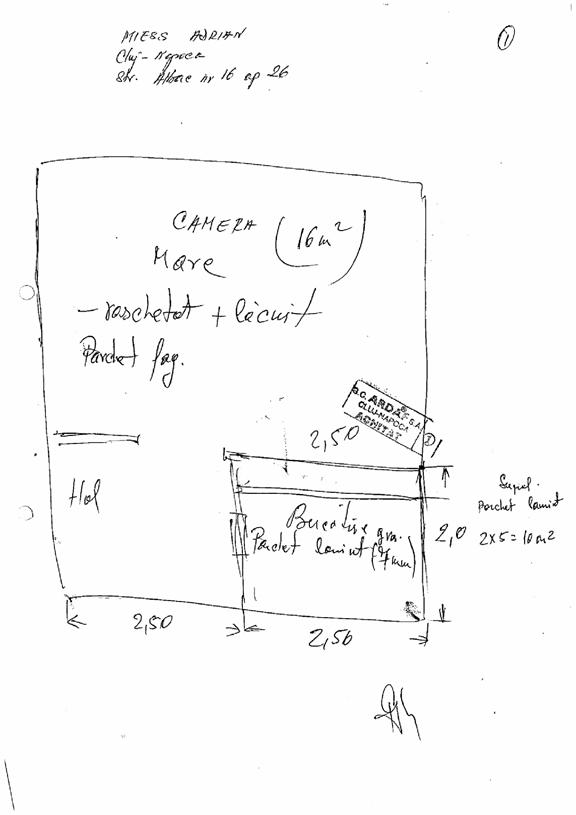 MIESS ADRIAN
Cluj-Napoca
Str. Albac nr 16 ap 26
1
CAMERA (16m²)
Mare
- raschetat + lăcuit
Parchet fag.
S.C. ARDAF S.A.
CLUJ-NAPOCA
ACHITAT
2,50
Hol
Bucătărie
Parchet laminat (7mm)
gros.
2,0
Supraf.
Parchet laminat
2x5=10m²
2,50
2,50